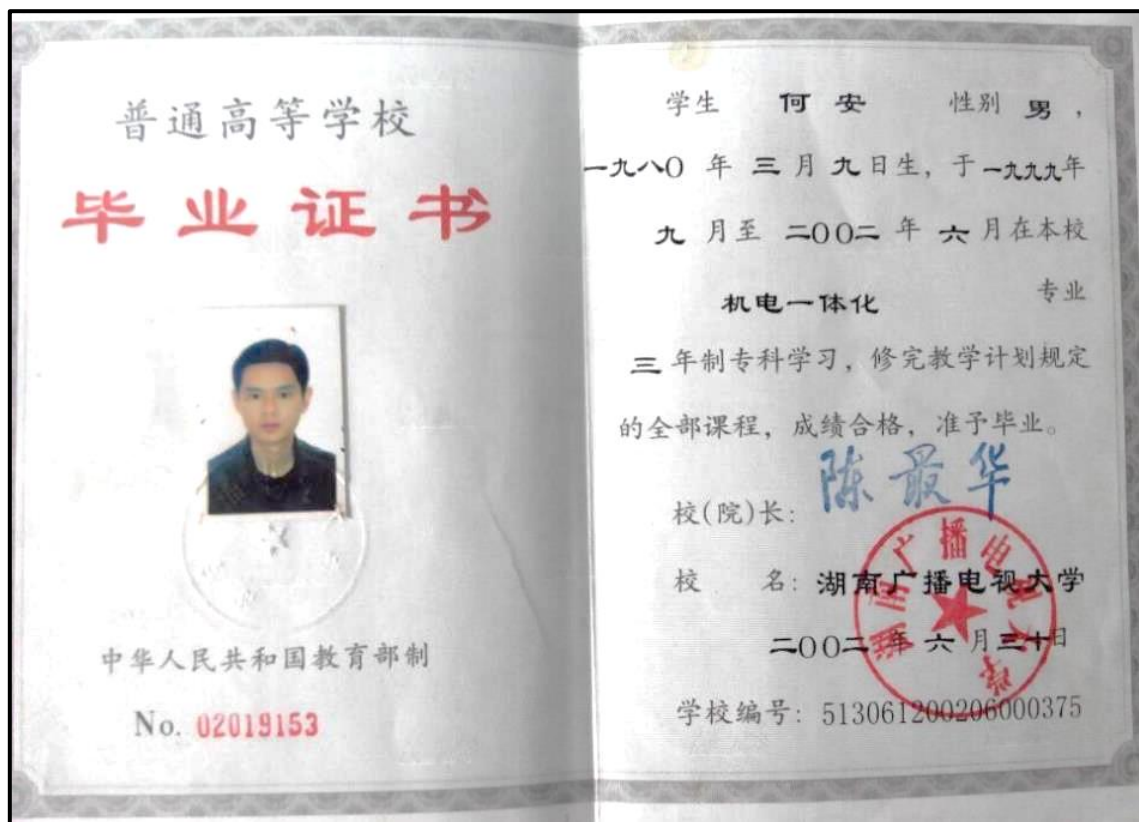 普通高等学校
毕业证书
中华人民共和国教育部制
No. 02019153
学生 何安 性别 男，
一九八〇 年 三 月 九 日生，于 一九九九年
九 月至 二〇〇二 年 六 月在本校
机电一体化 专业
三 年制专科学习，修完教学计划规定
的全部课程，成绩合格，准予毕业。
陈最华
校(院)长：
校 名：湖南广播电视大学
二〇〇二 年 六 月 三十日
学校编号：513061200206000375
湖南广播电视大学